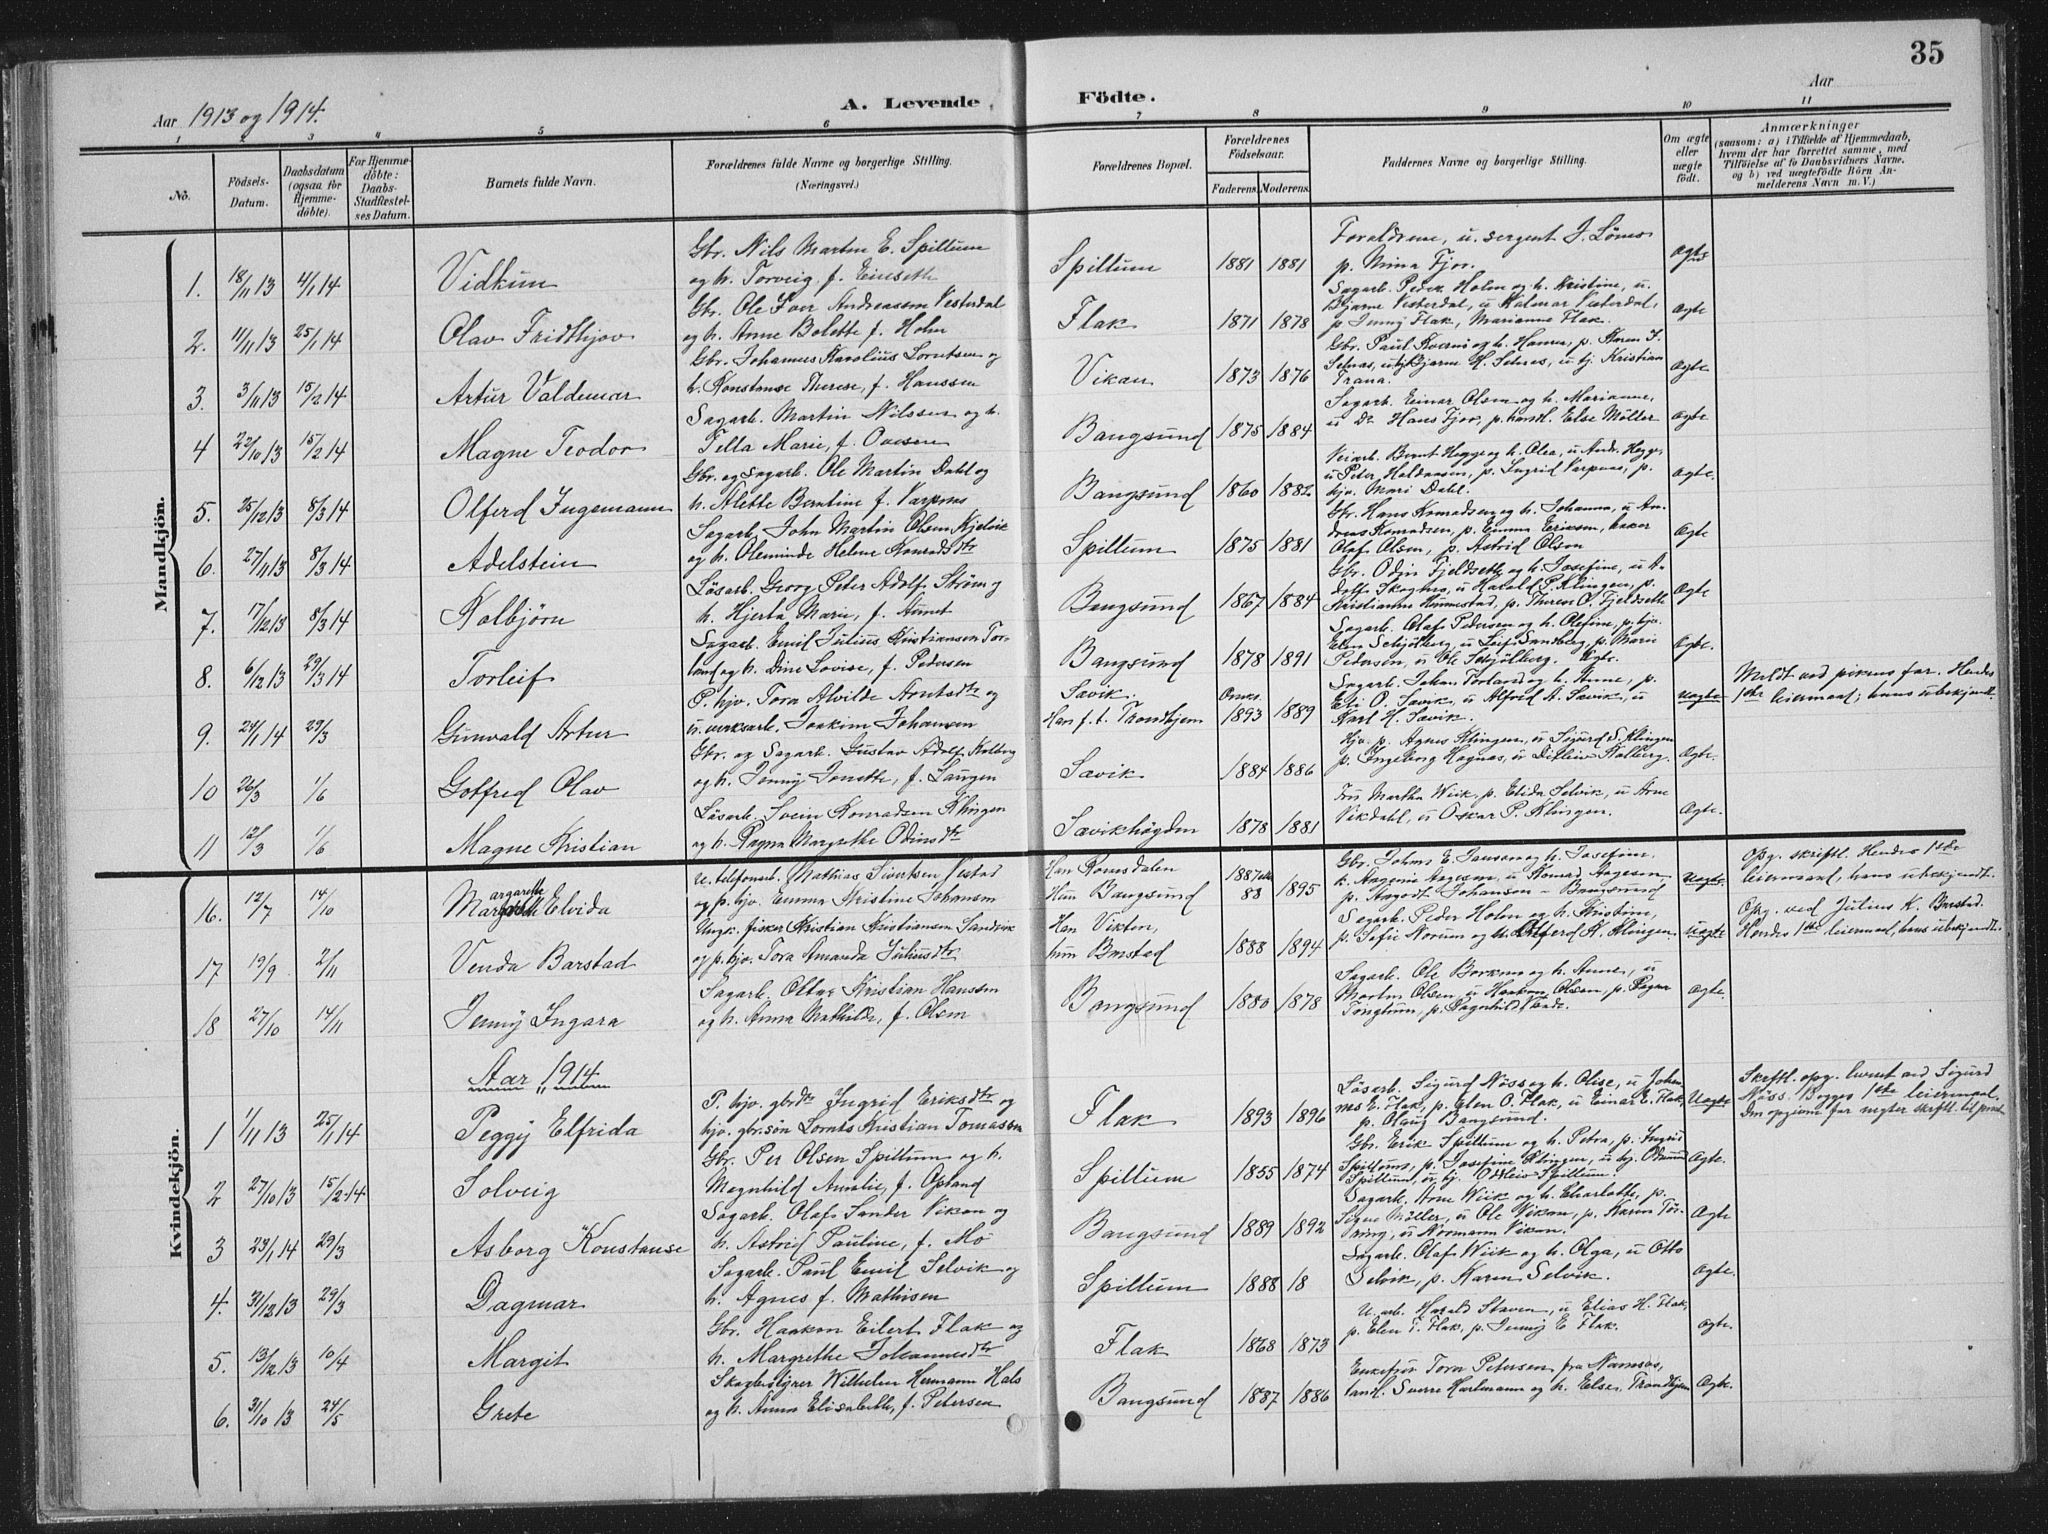 35
Aar 1913 og 1914.
A. Levende Födte.
Aar
1 2 3 4 5 6 7 8 9 10 11
No.
Födsels-Datum.
Daabsdatum (ogsaa for Hjemmedöbte).
For Hjemmedöbte: Daabs-Stadfestelses Datum.
Barnets fulde Navn.
Forældrenes fulde Navne og borgerlige Stilling. (Næringsvei.)
Forældrenes Bopæl.
Forældrenes Födselsaar.
Faderens. Moderens.
Faddernes Navne og borgerlige Stilling.
Om ægte eller uægte födt.
Anmærkninger
(saasom: a) i Tilfælde af Hjemmedaab, hvem der har forrettet samme, med Tilföielse af to Daabsvidners Navne. og b) ved uægtefödte Börn Anmelderens Navn m. V.)
Mandkjön.
1. 18/11 13 4/1 14 Vidkun
Gbr. Nils Martin E. Spillum
og h. Torveig f. Einseth
Spillum 1881 1881
Foraldrene, u. sergent J. Lömo
p. Mina Fjor.
Ægte
2. 11/11 13 25/1 14 Olav Fridthjov
Gbr. Ole Iver Andreassen Vesterdal
og h. Anne Bolette f. Holm
Flak 1871 1878
Sagarb. Peder Holm og h. Kristine, u.
Bjarne Vesterdal, u Halmar Vesterdal,
p. Jenny Flak, Marianne Flak.
Ægte
3. 3/11 13 15/2 14 Artur Valdemar
Gbr. Johannes Karolius Lorntsen og
h. Konstanse Therese, f. Hanssen
Vikan 1873 1876
Gbr. Paul
Trana.
Ægte
4 22/10 13 15/2 14 Magne Teodor
Sagarb. Martin Nilssen og h.
Tella Marie, f. Ovesen
Bangsund 1875 1884
Sagarb. Einar Olsen og h. Marianne,
u Dr Hans Fjor, p. handl. Else Möller
Ægte
5. 25/12 13 8/3 14 Olferd Ingemann
Gbr. og Sagarb. Ole Martin Dahl og
h. Alette Berntine f. Varpnes
Bangsund 1860 1882
Veiarb. Bernt Hegge og h. Olea, u Andr. Hegge,
u Peter Haldorsen, p. Ingrid Varpnes, p.
hjv. Mari Dahl.
Ægte.
6. 27/11 13 8/3 14 Adelstein
Sagarb. John Martin Olsen Kjelvik
og h. Oleminde Helene Konradsdtr
Spillum 1875 1881
Gbr. Hans Konradsen og h. Johanna, u An-
dreas Konradsen, p. Emma Eriksen, baker
Olaf Olsen, p. Astrid Olsen
Ægte
7. 17/12 13 8/3 14 Kolbjörn
Lösarb. Georg Peter Adolf Ström og
h. Hjerta Marie, f. Aunet
Bangsund 1867 1884
Gbr. Odin Fjeldseth og h. Josefine, u A-
dolf Skogmo, u Harald P. Klingen, p.
Kristianne Hummestad, p. Therese O. Fjeldseth
Ægte
8. 6/12 13 29/3 14 Torleif
Sagarb. Emil Julius Kristiansen Tor-
land og h. Dine Lovise, f. Pedersen
Bangsund 1878 1891
Sagarb. Olaf Pedersen og h. Olefine, p. hjv.
Elen Schjölberg, u Leif Sandberg, p. Marie
Pedersen, u Ole Schjölberg. Ægte.
Ægte.
9. 24/1 14 29/3 Gunvald Artur
P. hjv. Tora Alvilde Arntsdtr og
u. verksarb. Joakim Johansen
Savik.
Han f. t. Trondhjem
1893 1889
Sagarb. Johan Torland og h. Anne, p.
Eli O. Savik, u Alfred A. Savik, u
Karl H. Savik.
Uægte
Meldt ved pikens far. Hendes
1ste leiermaal; hans ubekjendt.
10 26/3 1/6 Gotfred Olav
Gbr. og Sagarb. Gustav Adolf Kolberg
og h. Jenny Jonette, f. Laugen
Savik 1884 1886
Hjv. p. Agnes Klingen, u Sigurd S. Klingen
p. Ingeborg Hognas, u Ditlew Kolberg.
Ægte.
11 12/3 1/6 Magne Kristian
Lösarb. Svein Konradsen Klingen
og h. Ragna Margrethe Odinsdtr
Savikhögden 1878 1881
Fru Martha Wiik, p. Elida Selvik, u Arne
Vikdahl, u Oskar P. Klingen.
Ægte.
Kvindekjön.
16. 12/7 14/10 Margarethe Elvida
U. telefonarb. Mathias Sivertsen Vestad
og p. hjv. Emma Kristine Johansen
Han Romsdalen
Hun Bangsund
1887 88 1895
Gbr. Johns E. Jansen og h. Josefine.
p. Aagodt Johanson - Bangsund
Uægte
Opg. skriftl. Hendes 1ste
leiermaal, hans ubekjendt.
17 19/9 2/11 Venda Barstad
Ungk. fisker Kristian Kristiansen Sandvik
og p. hjv. Tora Amanda Juliusdtr
Han Vikten,
hun Barstad
1888 1894
Sagarb. Peder Holm og h. Kristine,
p. Sofie Norum og u. Olferd K. Klingen.
Uægte
Opg. ved Julius K. Barstad.
Hendes 1ste leiermaal, hans ubekjendt.
18 27/10 14/11 Jenny Ingara
Sagarb. Ottar Kristian Hanssen
og h. Anna Mathilde, f. Olsen
Bangsund 1880 1878
Sagarb. Ole Borkmo og h. Anne, u
Morten Olsen, u Haakon Olsen, p. Ragna
Tongtum, p. Dagerhild
Ægte.
Aar 1914
1 1/11 13 25/1 14 Peggy Elfrida
P. hjv. gbrdtr Ingrid Eriksdtr og
hjv. gbr.sön Lornts Kristian Tomassen
Flak 1893 1896
Lösarb. Sigurd Nöss og h. Olise, u Johan-
nes E. Flak, p. Elen O. Flak, u Einar E. Flak,
p. Olaug Bangsund.
Uægte
Skriftl. opg. levert ved Sigurd
Nöss. Begges 1ste leiermaal.
Den opgivne far negter skriftl. til prest
2 27/10 13 15/2 14 Solveig
Gbr. Per Olsen Spillum og h.
Magnhild Amalie, f. Opland
Spillum 1855 1874
Gbr. Erik Spillum og h. Petra, p. Ingrid
Spillum, p. Josefine Klingen, u hj. Odmund
Spillum, u hj. Oddleiv Spillum.
Ægte.
3 23/1 14 29/3 Asborg Konstanse
Sagarb. Olaf Sander Vikan og
h. Astrid Pauline, f. Mo
Bangsund 1889 1892
Sagarb. Arne Wiik og h. Charlotte, p.
Signe Möller, u Ole Vikan, p. Karen Tör-
ring, u Normann Vikan.
Ægte
4. 31/12 13 29/3 Dagmar
Sagarb. Paul Emil Selvik og
h. Agnes f. Mathisen
Spillum 1888 18
Sagarb. Olaf Wiik og h. Olga, u Otto
Selvik, p. Karen Selvik.
Ægte.
5. 13/12 13 10/4 Margit
Gbr. Haakon Eilert Flak og
h. Margrethe Johannesdtr
Flak 1868 1873
U. arb. Harald Staven, u Elias H. Flak,
p. Elen T. Flak, p. Jenny E Flak.
Ægte.
6. 31/10 13 24/5 Grete
Skogbetjener Wilhelm Hermann Hals
og h. Anna Elisabeth, f. Petersen
Bangsund 1887 1886
Enkefru Tora Petersen fra Namsos,
handl. Sverre Hartmann og h. Else, Trondhjem
Ægte.